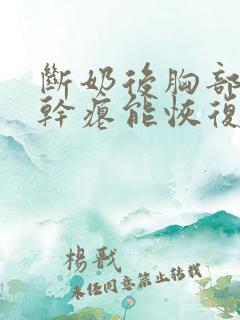 斷奶後胸部
幹癟能恢復
楊戩
未經同意禁止轉載